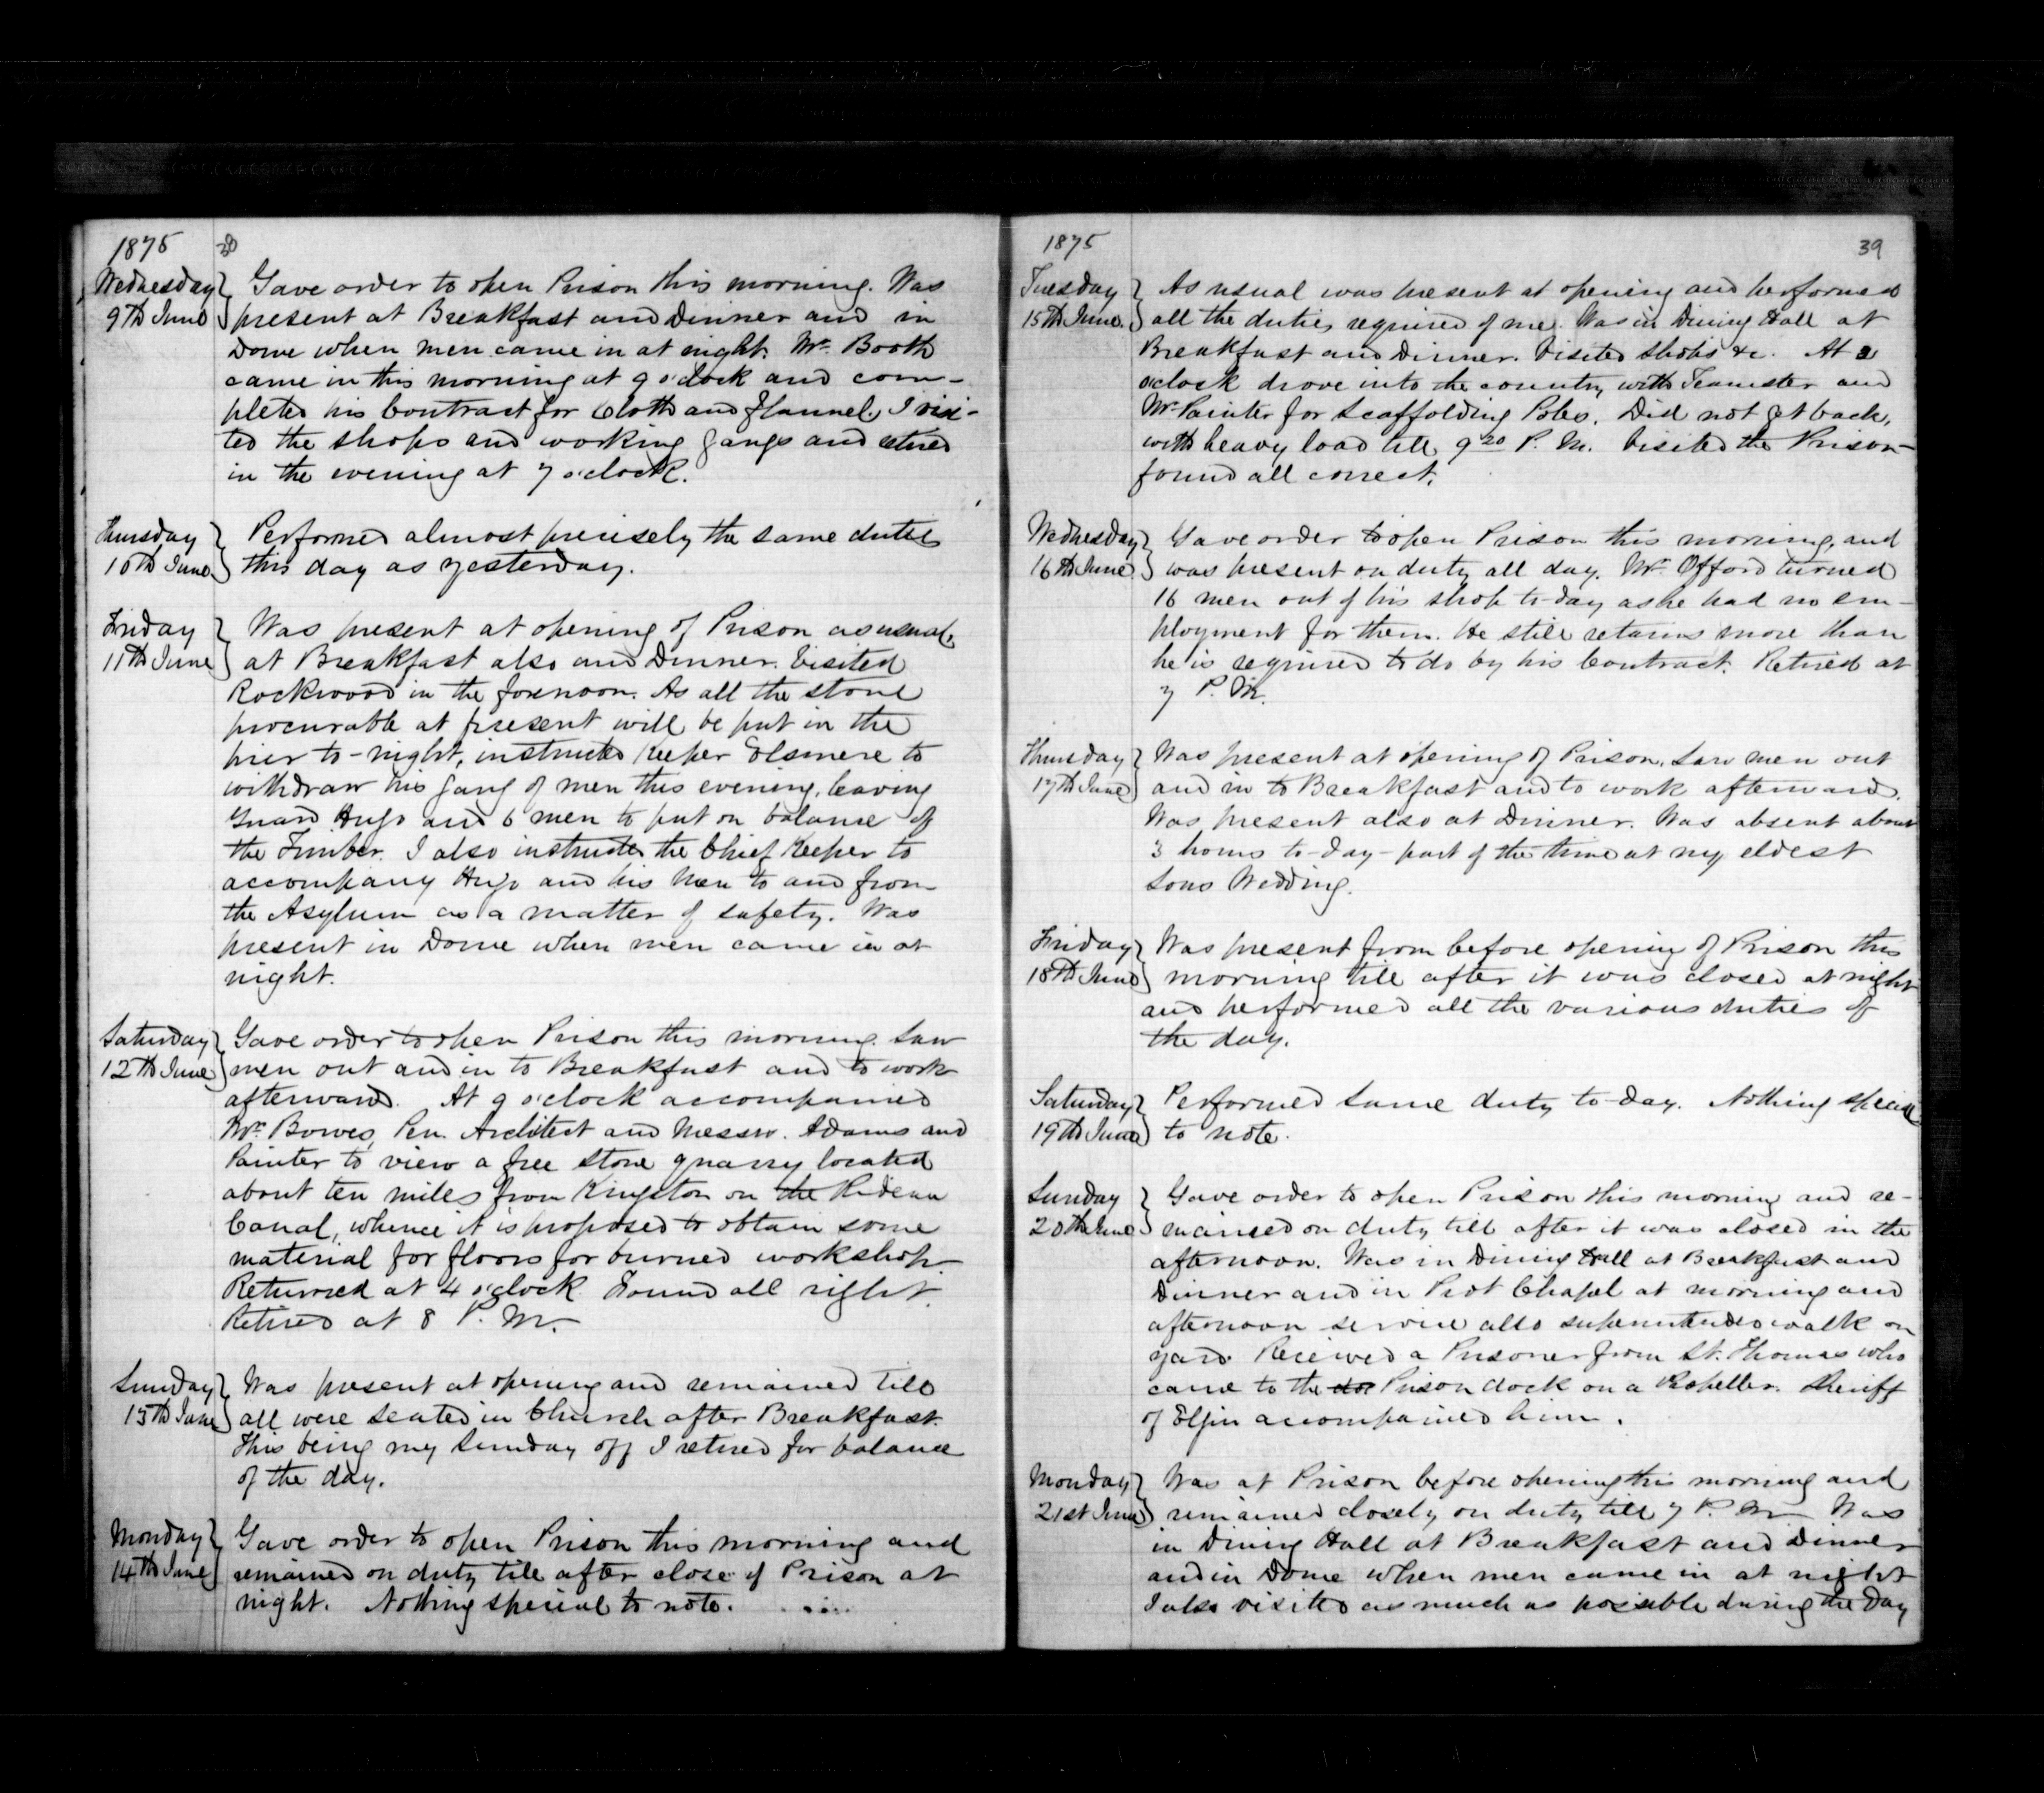 1875
Wednesday 9th June Gave order to open Prison this morning. Was
present at Breakfast and Dinner and in
Dome when men came in at night. Mr. Booth
came in this morning at 9 o'clock and com-
pleted his Contract for Cloth and flannel. I visi-
ted the shops and working gangs and retired
in the evening at 7 o'clock.
Thursday 10th June Performed almost precisely the same duties
this day as yesterday.
Friday 11th June Was present at opening of Prison as usual,
at Breakfast also and Dinner. Visited
Rockwood in the forenoon. As all the stone
procurable at present will be put in the
pier to-night, instructed Keeper Elsmere to
withdraw his gang of men this evening, leaving
Guard Hugo and 6 men to put on balance of
the Timber. I also instructed the Chief Keeper to
accompany Hugo and his men to and from
the Asylum as a matter of safety. Was
present in Dome when men came in at
night.
Saturday 12th June Gave order to open Prison this morning. Saw
men out and in to Breakfast and to work
afterward. At 9 o'clock accompanied
Mr. Bowes, Pen. Architect and Messrs. Adams and
Painter to view a free stone quarry located
about ten miles from Kingston on the Rideau
Canal, whence it is proposed to obtain some
material for floors for burned workshop.
Returned at 4 o'clock Found all right.
Retired at 8 P.M.
Sunday 13th June Was present at opening and remained till
all were seated in Church after Breakfast.
This being my Sunday off I retired for balance
of the day.
Monday 14th June Gave order to open Prison this morning and
remained on duty till after close of Prison at
night. Nothing special to note.
1875 39
Tuesday 15th June. As usual was present at opening and performed
all the duties required of me. Was in Dining Hall at
Breakfast and Dinner. Visited shops &c. At 2
o'clock drove into the country with Teamster and
Mr. Painter for Scaffolding Poles. Did not get back,
with heavy load till 9 20 P.M. Visited the Prison-
found all correct.
Wednesday 16th June Gave order to open Prison this morning, and
was present on duty all day. Mr. Offord turned
16 men out of his shop to-day as he had no em-
ployment for them. He still retains more than
he is required to do by his Contract. Retired at
7 P.M.
Thursday 17th June Was present at opening of Prison, saw men out
and in to Breakfast and to work afterward.
Was present also at Dinner. Was absent about
3 hours to-day - part of the time at my eldest
sons Wedding.
Friday 18th June Was present from before opening of Prison this
morning till after it was closed at night
and performed all the various duties of
the day.
Saturday 19th June Performed same duty to-day. Nothing special
to note.
Sunday 20th June Gave order to open Prison this morning and re-
mained on duty till after it was closed in the
afternoon. Was in Dining Hall at Breakfast and
Dinner and in Prot Chapel at morning and
afternoon service also superintended walk on
yard. Received a Prisoner from St. Thomas who
came to the Prison dock on a Propeller. Sheriff
of Elgin accompanied him.
Monday 21st June Was at Prison before opening this morning and
remained closely on duty till 7 P.M Was
in Dining Hall at Breakfast and Dinner
and in Dome when men came in at night
I also visited as much as possible during the Day